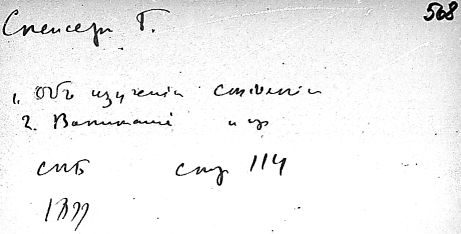 568
Спенсер Г.
1. Объ изученіи
2. Воспитаніе и пр
СПБ стр 114
1899